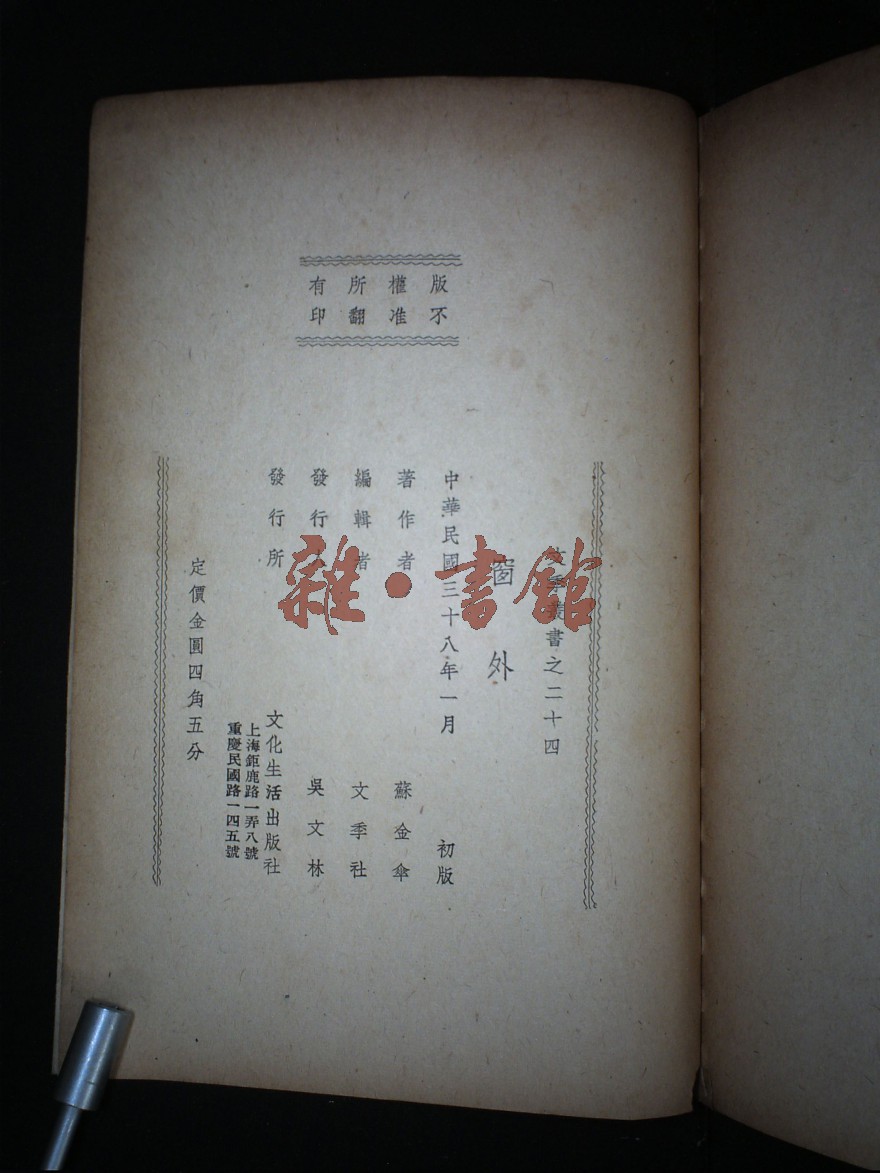 版權所有
不准翻印
文季叢書之二十四
窗外
中華民國三十八年一月 初版
著作者 蘇金傘
編輯者 文季社
發行人 吳文林
發行所 文化生活出版社
上海鉅鹿路一弄八號
重慶民國路一四五號
定價金圓四角五分
雜·書館